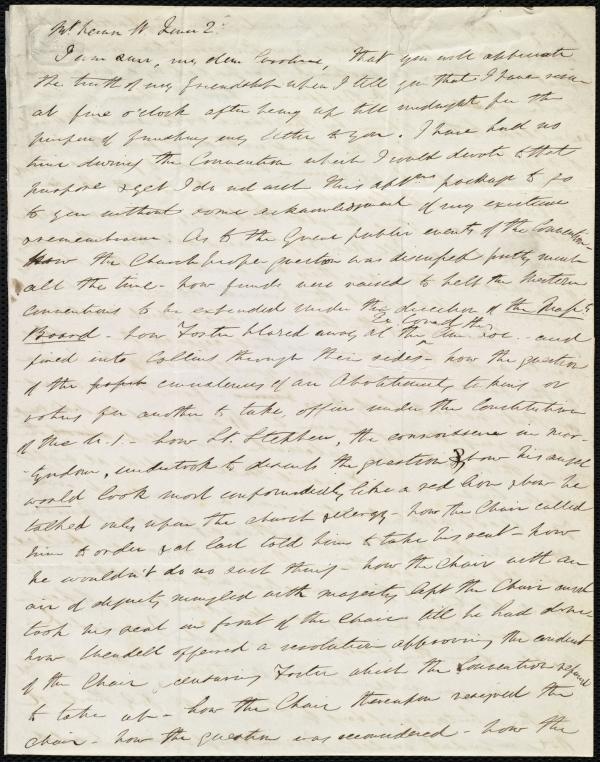 Mt Vernon St June 2d
I am sure, my dear Caroline, that you will appreciate
the truth of my friendship when I tell you that I have risen
at five o'clock after being up till midnight for the
purpose of finishing my letter to you. I have had no
time during the Convention which I could devote to that
purpose & yet I do not wish this aftns package to go
to you without some acknowledgment of my existence
& remembrance. As to the Great public events of the Convention
how the Church prope question was discussed pretty much
all the time - how funds were raised to help the Western
conventions to be expended under the direction of the Mass.
Board - how Foster blazed away at the Ex. Com. of the Am. Soc. - and
fired into Collins through their sides - how the question
of the consistency of an Abolitionist's taking or
voting for another to take, office under the Constitution
of the U.S. - how St. Stephen, the connoisseur in mar-
tyrdom, undertook to discuss the question & how his angel
would look most confoundedly like a red lion & how he
talked only upon the church & clergy - how the Chair called
him to order & at last told him to take his seat - how
he wouldn't do no such thing - how the Chair with an
air of dignity mingled with majesty left the Chair and
took his seat in front of the Chair till he had done -
how Wendell offered a resolution approving the conduct
of the Chair, censuring Foster which the Convention refused
to take up - how the Chair thereupon resigned the
chair - how the question was reconsidered - how the